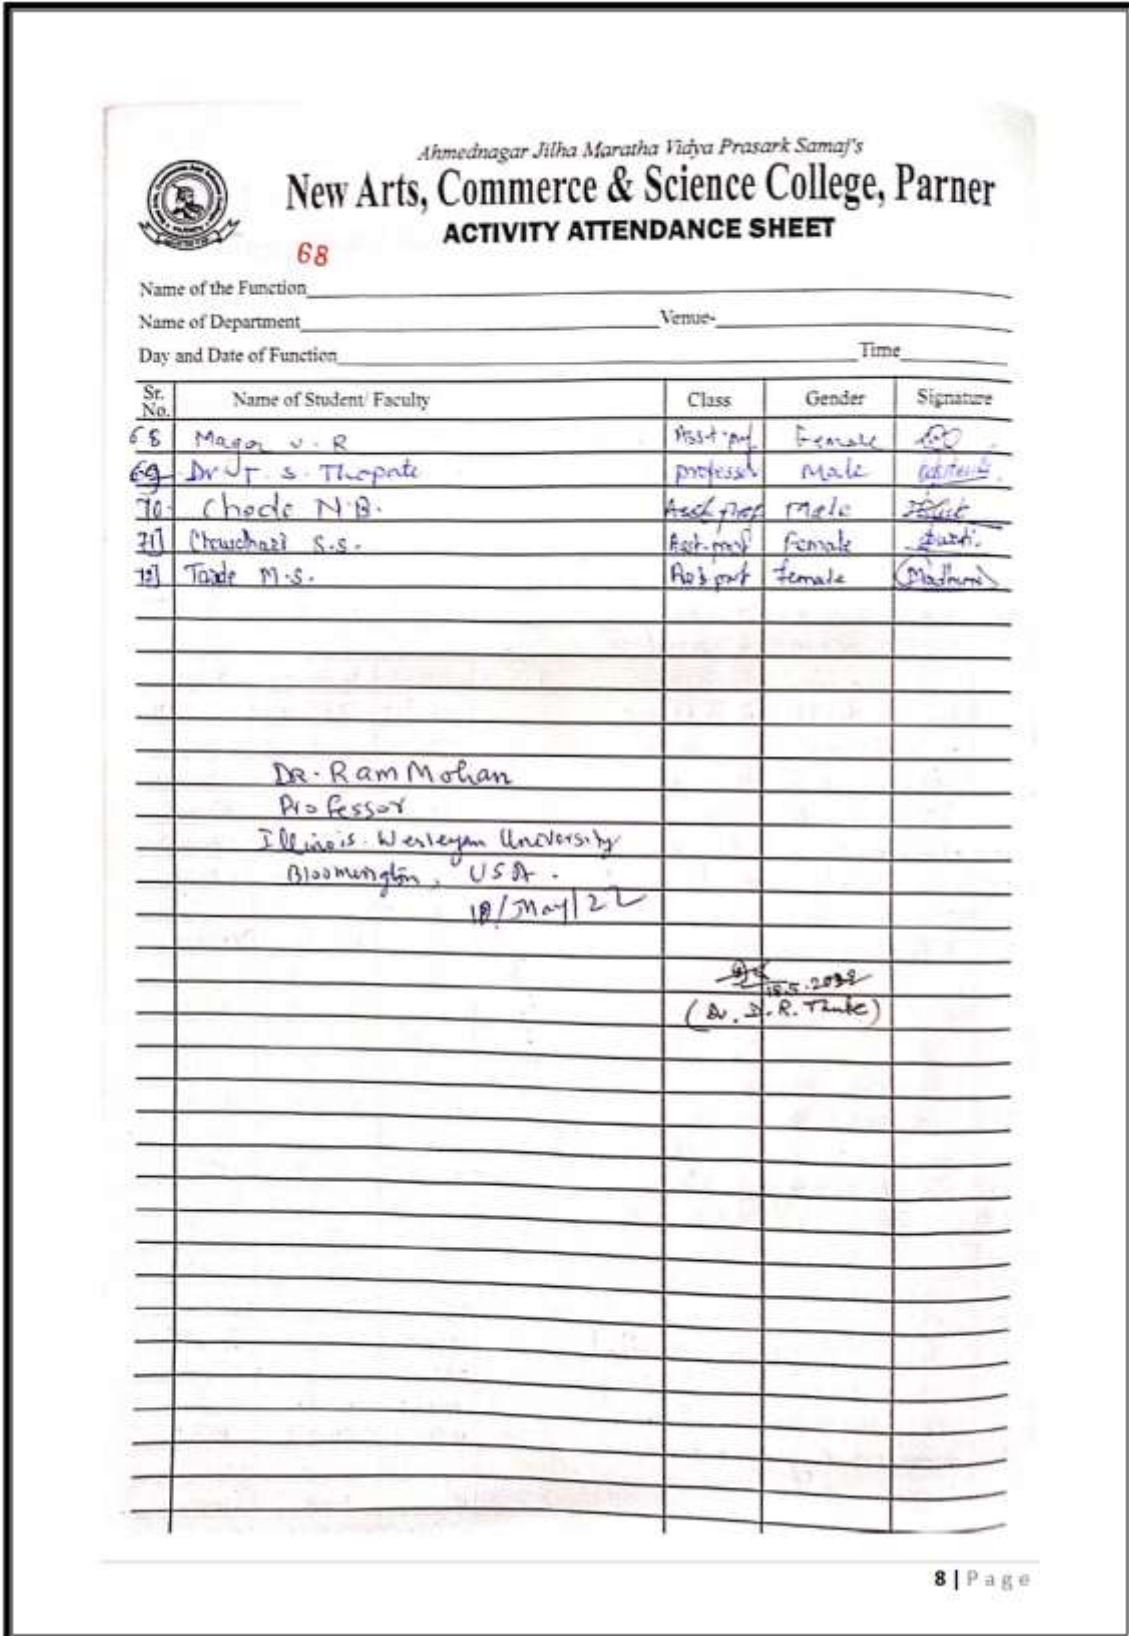 Ahmednagar Jilha Maratha Vidya Prasark Samaj's
New Arts, Commerce & Science College, Parner
ACTIVITY ATTENDANCE SHEET
68
Name of the Function
Name of Department Venue-
Day and Date of Function Time
Sr. No. Name of Student/ Faculty Class Gender Signature
68 Magar V. R Asst. prof Female
69 Dr T. S. Thopate professor Male
70. Chode N.B. Asst prof Male
71] S.S. Asst. prof Female
72] Tarde M.S. Female
DR. Ram Mohan
Professor
Illinois Wesleyan University
Bloomington, USA.
18/May/22
18.5.2022
(Dr. D.R. Thube)
8 | Page